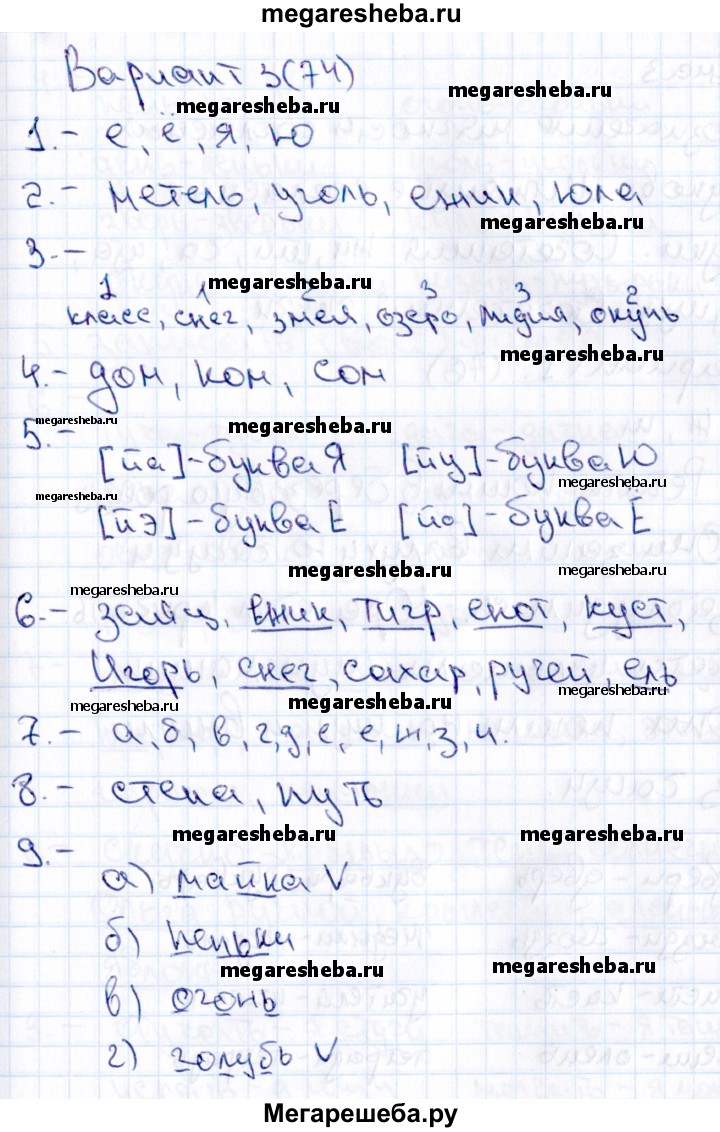 megaresheba.ru
Вариант 3(74)
megaresheba.ru
megaresheba.ru
1.- е, ё, я, ю
2.- метель, уголь, ежик, юла
megaresheba.ru
3.-
megaresheba.ru
1 1 2 3 3 2
класс, снег, змея, озеро, лидия, окунь
megaresheba.ru
4.- дом, ком, сом
megaresheba.ru megaresheba.ru
5.-
[йа]-буква Я [йу]-буква Ю
megaresheba.ru
megaresheba.ru
[йэ]-буква Е [йо]-буква Ё
megaresheba.ru megaresheba.ru
megaresheba.ru
6.- заяц, ежик, тигр, енот, куст,
megaresheba.ru
Игорь, снег, сахар, ручей, ель
megaresheba.ru megaresheba.ru megaresheba.ru
7.- а, б, в, г, д, е, е, ж, з, и.
8.- стена, путь
megaresheba.ru megaresheba.ru
9.-
а) майка V
б) пеньки
megaresheba.ru megaresheba.ru
в) огонь
г) голубь V
Мегарешеба.ру